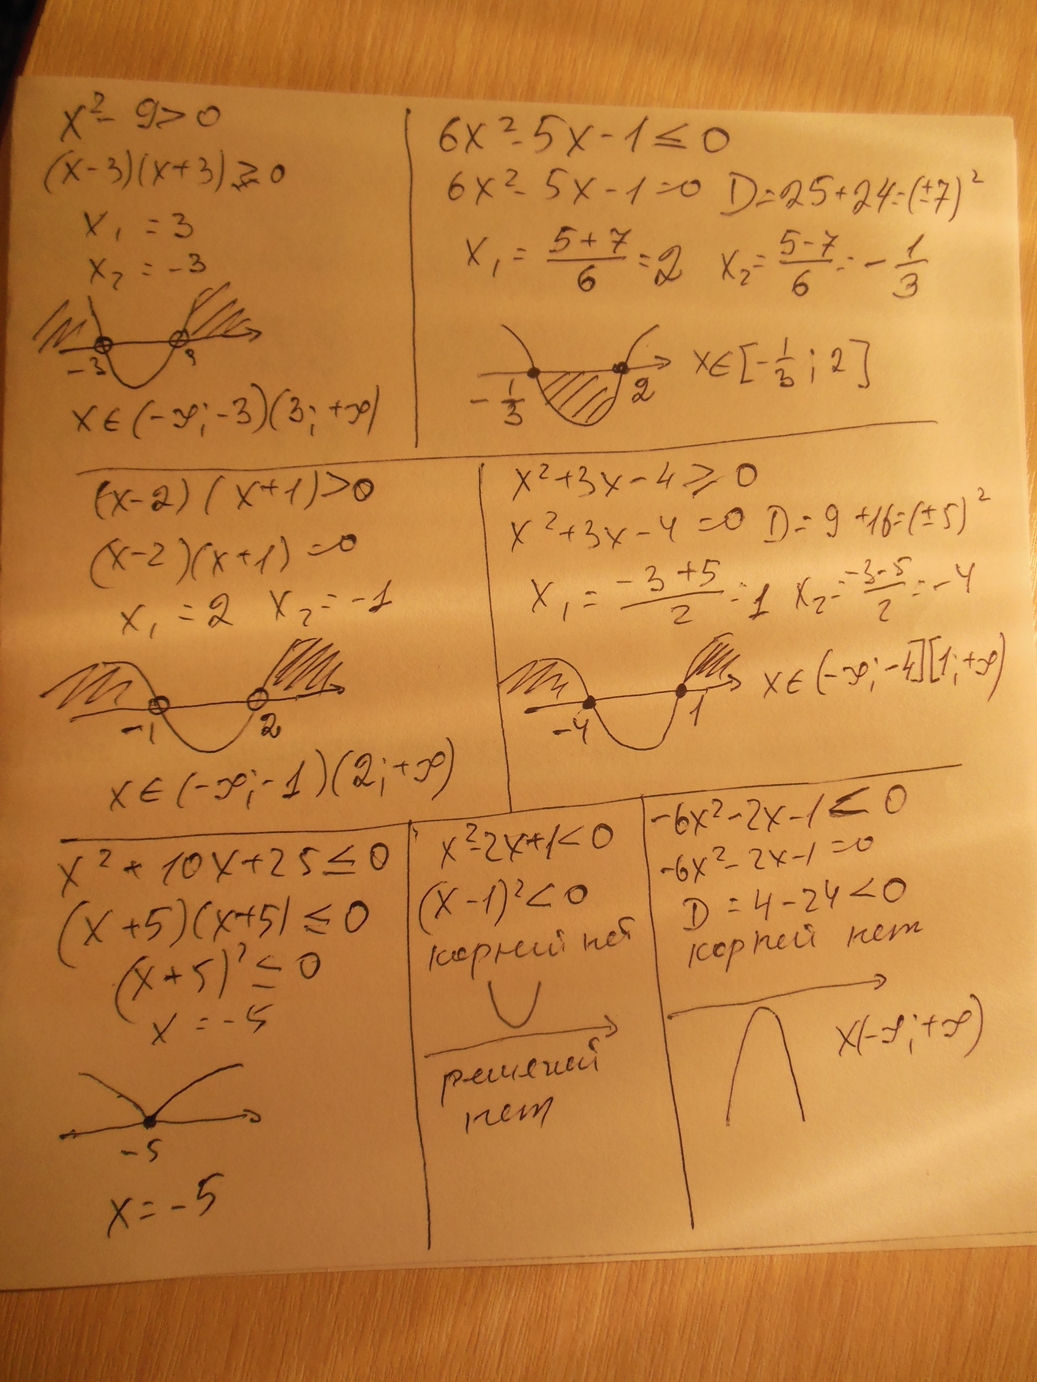 x² - 9 > 0
(x-3)(x+3) ≥ 0
x₁ = 3
x₂ = -3
-3 3
x ∈ (-∞; -3)(3; +∞)
6x² - 5x - 1 ≤ 0
6x² - 5x - 1 = 0 D = 25 + 24 = (±7)²
x₁ = (5+7)/6 = 2 x₂ = (5-7)/6 = -1/3
-1/3 2 x ∈ [-1/3; 2]
(x-2)(x+1) > 0
(x-2)(x+1) = 0
x₁ = 2 x₂ = -1
-1 2
x ∈ (-∞; -1)(2; +∞)
x² + 3x - 4 ≥ 0
x² + 3x - 4 = 0 D = 9 + 16 = (±5)²
x₁ = (-3+5)/2 = 1 x₂ = (-3-5)/2 = -4
-4 1 x ∈ (-∞; -4][1; +∞)
x² + 10x + 25 ≤ 0
(x+5)(x+5) ≤ 0
(x+5)² ≤ 0
x = -5
-5
x = -5
x² - 2x + 1 < 0
(x-1)² < 0
корний нет
решений
нет
-6x² - 2x - 1 < 0
-6x² - 2x - 1 = 0
D = 4 - 24 < 0
корней нет
x(-∞; +∞)